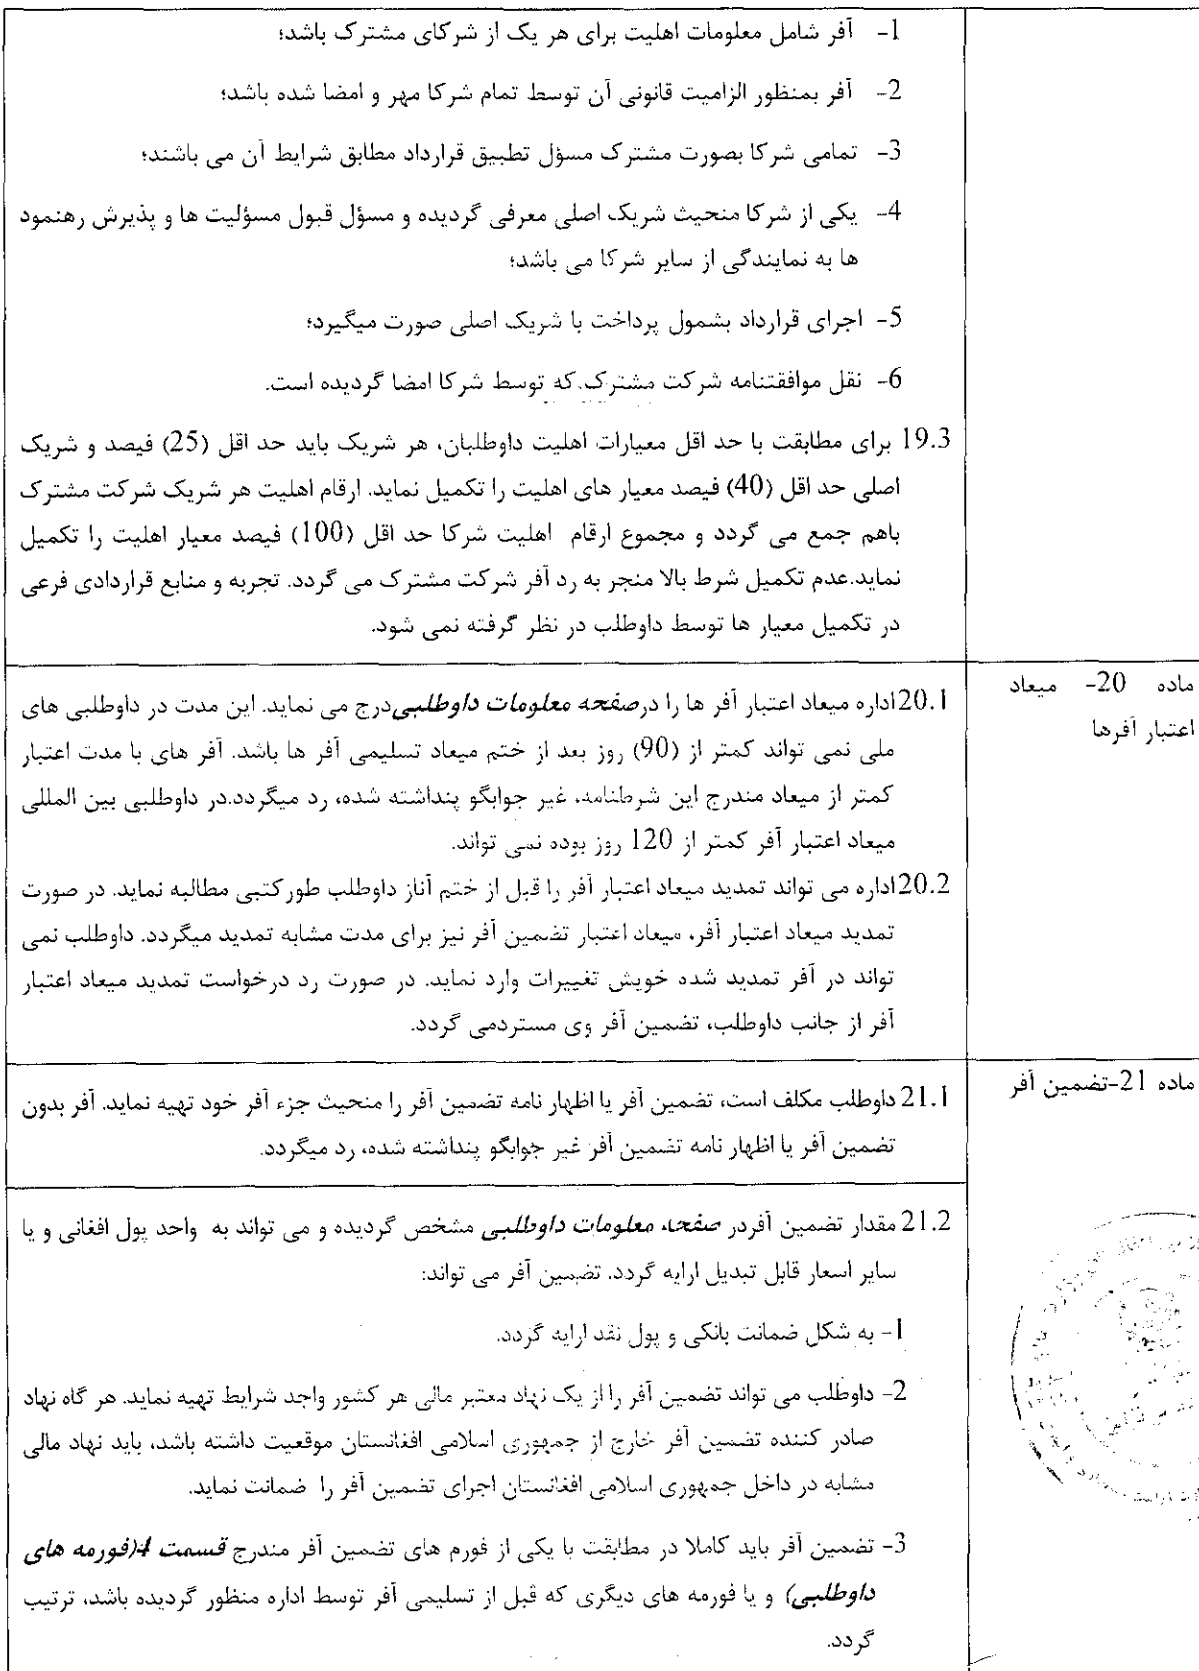 1- آفر شامل معلومات اهلیت برای هر یک از شرکای مشترک باشد؛
2- آفر بمنظور الزامیت قانونی آن توسط تمام شرکا مهر و امضا شده باشد؛
3- تمامی شرکا بصورت مشترک مسؤل تطبیق قرارداد مطابق شرایط آن می باشند؛
4- یکی از شرکا منحیث شریک اصلی معرفی گردیده و مسؤل قبول مسؤلیت ها و پذیرش رهنمود
ها به نمایندگی از سایر شرکا می باشد؛
5- اجرای قرارداد بشمول پرداخت با شریک اصلی صورت میگیرد؛
6- نقل موافقتنامه شرکت مشترک که توسط شرکا امضا گردیده است.
19.3 برای مطابقت با حد اقل معیارات اهلیت داوطلبان، هر شریک باید حد اقل (25) فیصد و شریک
اصلی حد اقل (40) فیصد معیار های اهلیت را تکمیل نماید. ارقام اهلیت هر شریک شرکت مشترک
باهم جمع می گردد و مجموع ارقام اهلیت شرکا حد اقل (100) فیصد معیار اهلیت را تکمیل
نماید.عدم تکمیل شرط بالا منجر به رد آفر شرکت مشترک می گردد. تجربه و منابع قراردادی فرعی
در تکمیل معیار ها توسط داوطلب در نظر گرفته نمی شود.
ماده 20- میعاد
اعتبار آفرها
20.1اداره میعاد اعتبار آفر ها را درصفحه معلومات داوطلبیدرج می نماید. این مدت در داوطلبی های
ملی نمی تواند کمتر از (90) روز بعد از ختم میعاد تسلیمی آفر ها باشد. آفر های با مدت اعتبار
کمتر از میعاد مندرج این شرطنامه، غیر جوابگو پنداشته شده، رد میگردد.در داوطلبی بین المللی
میعاد اعتبار آفر کمتر از 120 روز بوده نمی تواند.
20.2اداره می تواند تمدید میعاد اعتبار آفر را قبل از ختم آناز داوطلب طورکتبی مطالبه نماید. در صورت
تمدید میعاد اعتبار آفر، میعاد اعتبار تضمین آفر نیز برای مدت مشابه تمدید میگردد. داوطلب نمی
تواند در آفر تمدید شده خویش تغییرات وارد نماید. در صورت رد درخواست تمدید میعاد اعتبار
آفر از جانب داوطلب، تضمین آفر وی مستردمی گردد.
ماده 21-تضمین آفر
21.1 داوطلب مکلف است، تضمین آفر یا اظهار نامه تضمین آفر را منحیث جزء آفر خود تهیه نماید. آفر بدون
تضمین آفر یا اظهار نامه تضمین آفر غیر جوابگو پنداشته شده، رد میگردد.
21.2 مقدار تضمین آفردر صفحه معلومات داوطلبی مشخص گردیده و می تواند به واحد پول افغانی و یا
سایر اسعار قابل تبدیل ارایه گردد. تضمین آفر می تواند:
1- به شکل ضمانت بانکی و پول نقد ارایه گردد.
2- داوطلب می تواند تضمین آفر را از یک نهاد معتبر مالی هر کشور واجد شرایط تهیه نماید. هر گاه نهاد
صادر کننده تضمین آفر خارج از جمهوری اسلامی افغانستان موقعیت داشته باشد، باید نهاد مالی
مشابه در داخل جمهوری اسلامی افغانستان اجرای تضمین آفر را ضمانت نماید.
3- تضمین آفر باید کاملا در مطابقت با یکی از فورم های تضمین آفر مندرج قسمت 4(فورمه های
داوطلبی) و یا فورمه های دیگری که قبل از تسلیمی آفر توسط اداره منظور گردیده باشد، ترتیب
گردد.